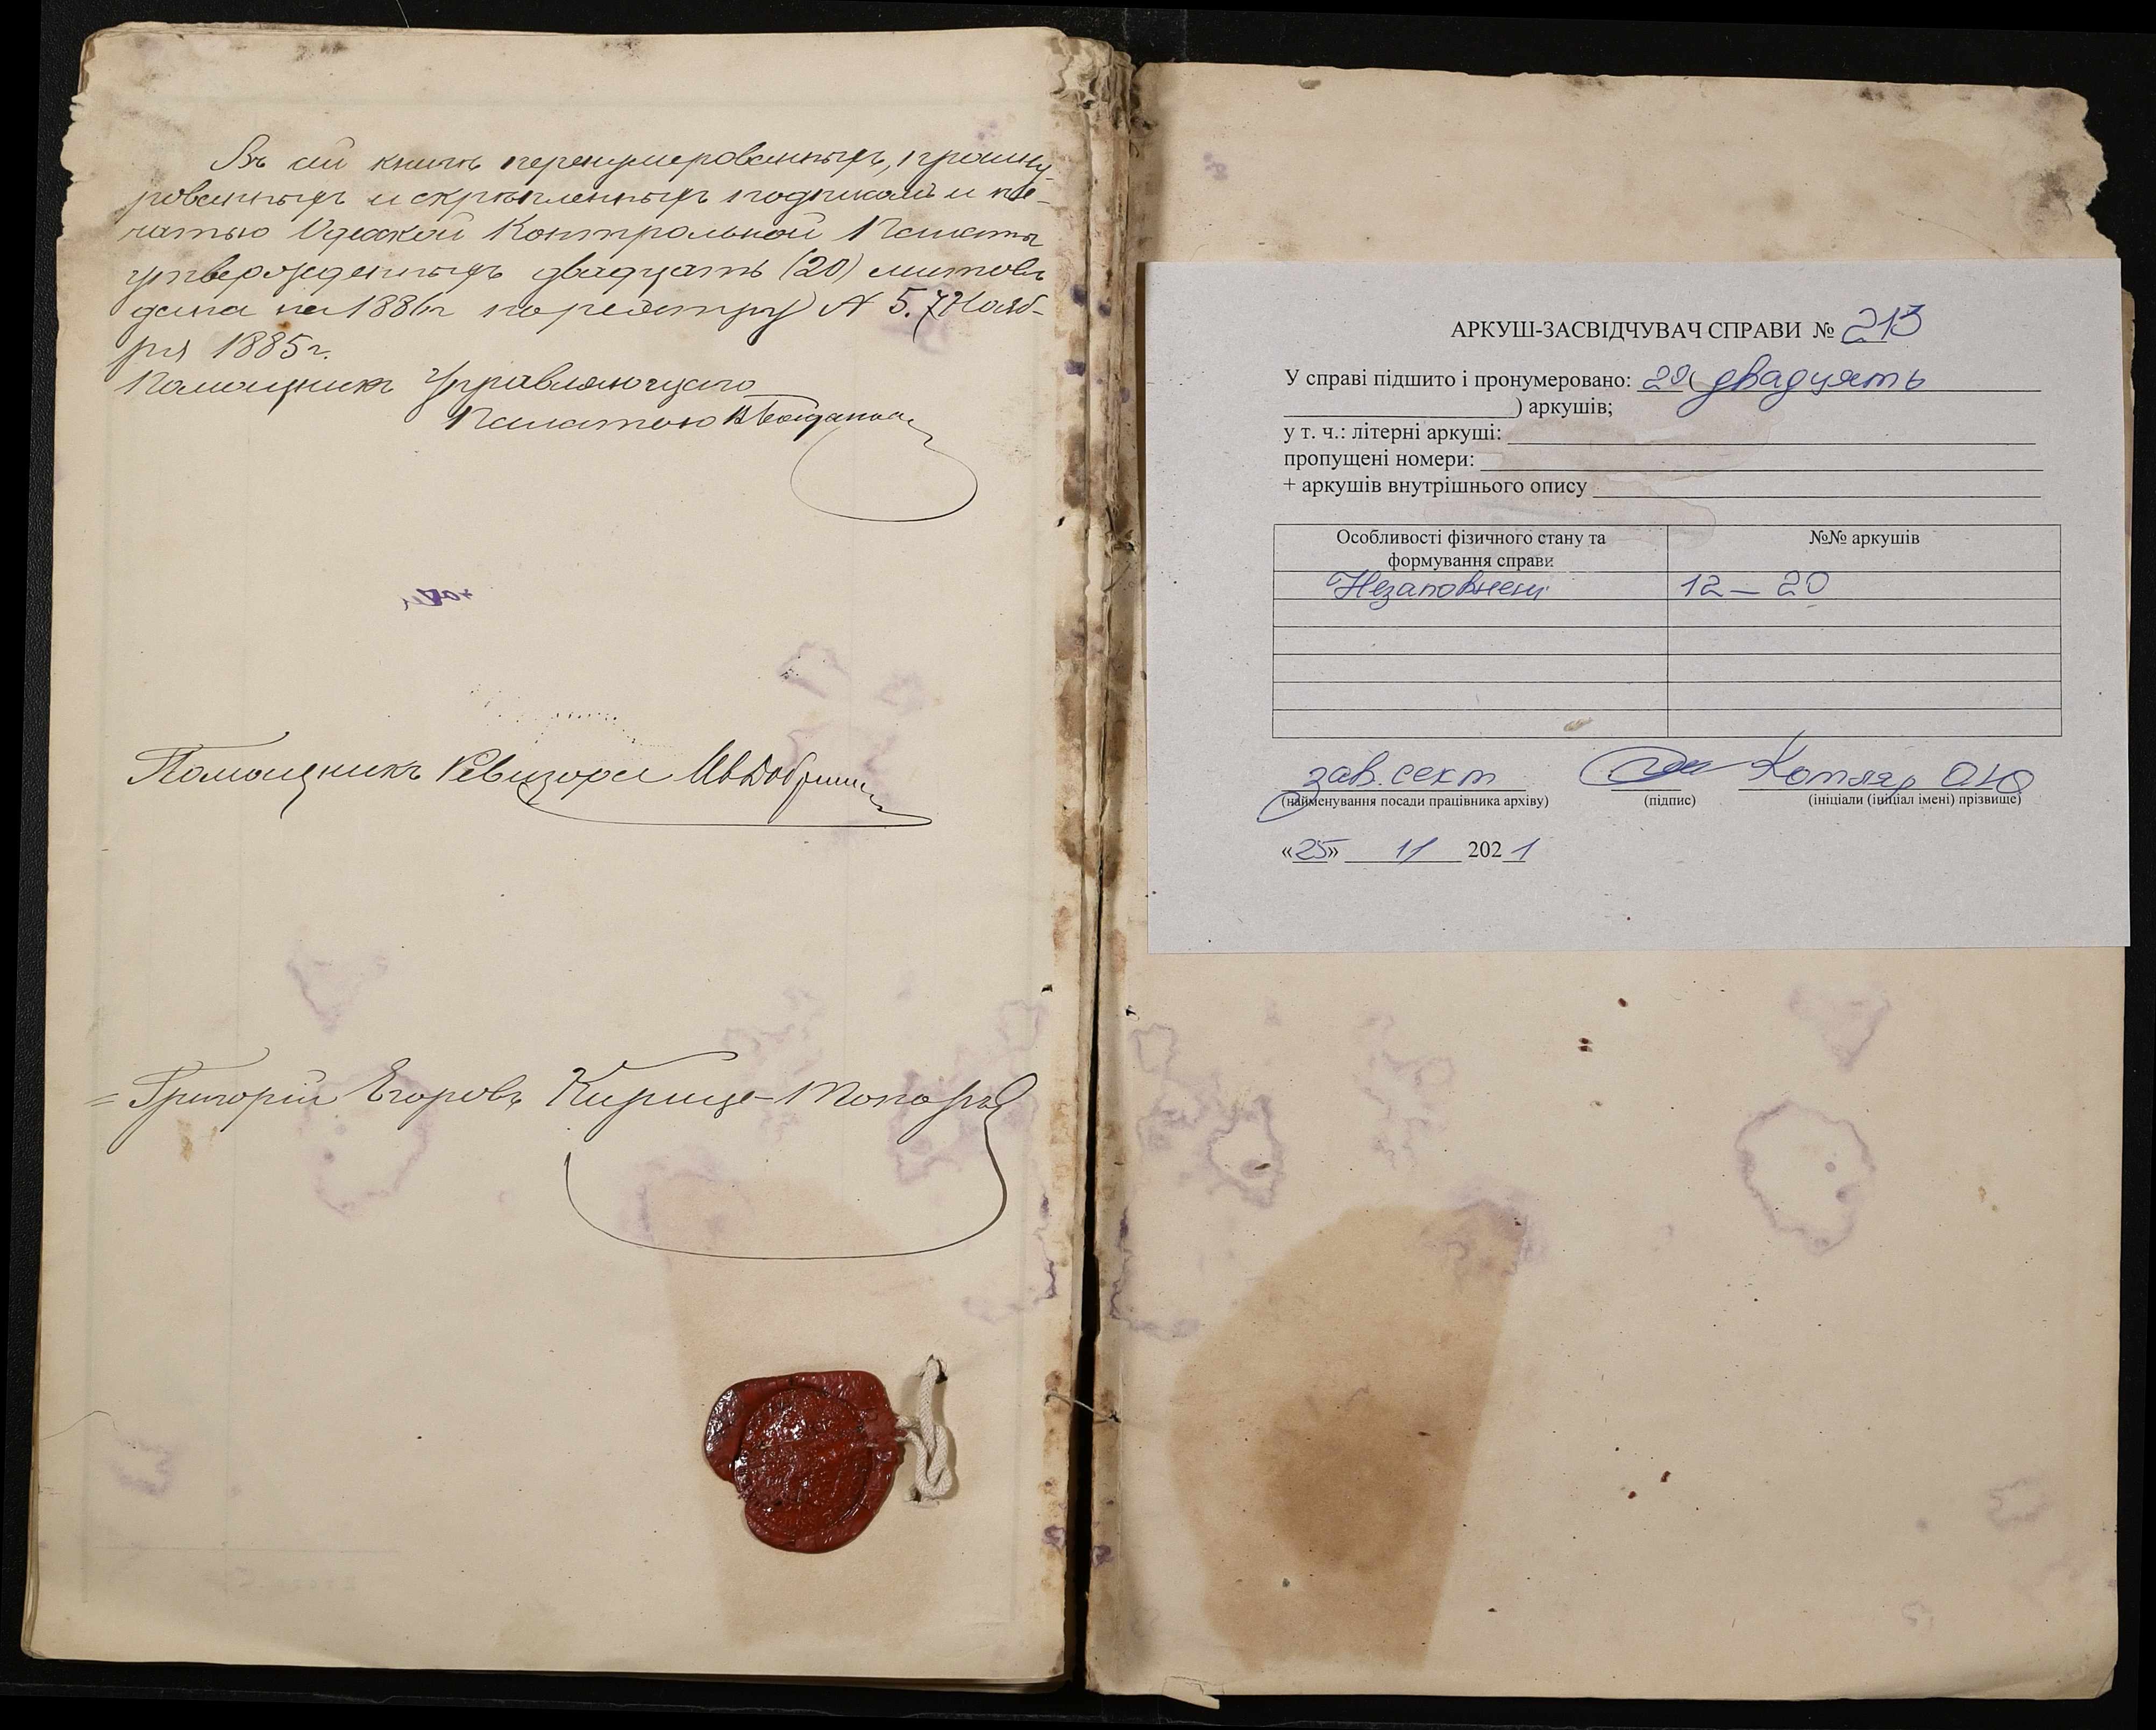 Въ сей книгѣ перенумерованныхъ, прошну-
рованныхъ и скрѣпленныхъ подписами и пе-
чатью Одесской Контрольной Палаты
утвержденныхъ двадцать (20) листовъ
дана на 1886 г. по реестру N 5. 7 Нояб-
ря 1885 г.
Помощникъ Управляющаго
Палатою
Помощникъ Ревизора
Григорій Егоровъ
АРКУШ-ЗАСВІДЧУВАЧ СПРАВИ № 213
У справі підшито і пронумеровано: 20 (двадцять
) аркушів;
у т. ч.: літерні аркуші:
пропущені номери:
+ аркушів внутрішнього опису
Особливості фізичного стану та №№ аркушів
формування справи
Незаповнені 12 – 20
зав. сект Котляр О.Ю
(найменування посади працівника архіву) (підпис) (ініціали (ініціал імені) прізвище)
«25» 11 2021